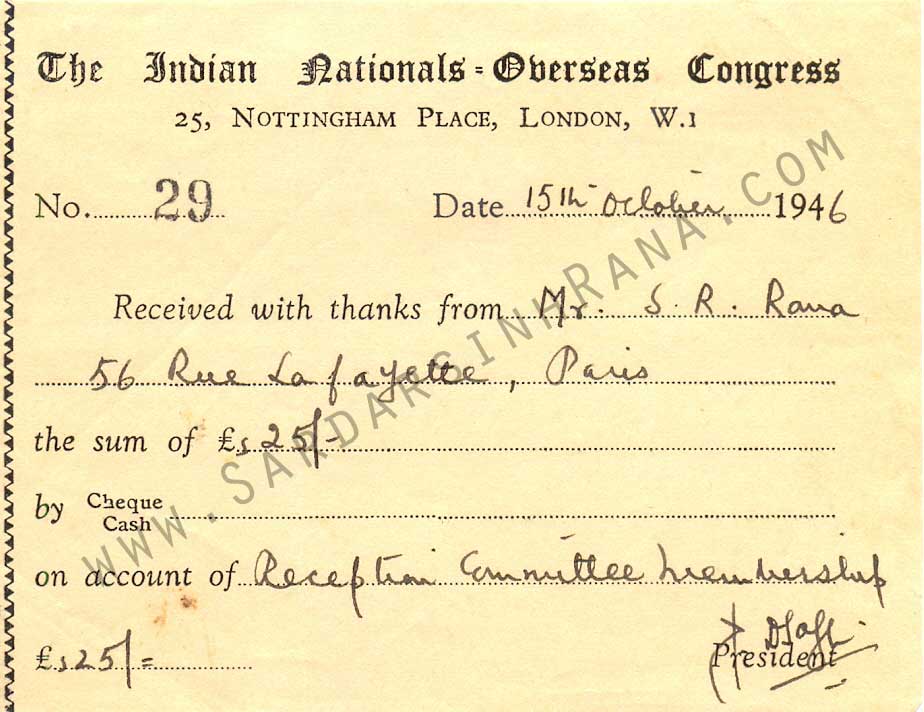 The Indian Nationals-Overseas Congress
25, Nottingham Place, London, W.1
No. 29 Date 15th October 1946
Received with thanks from Mr. S. R. Rana
56 Rue Lafayette, Paris
the sum of £s 25/-
by Cheque
Cash
on account of Reception Committee Membership
£s 25/=
President
WWW.SARDARSINHRANA.COM